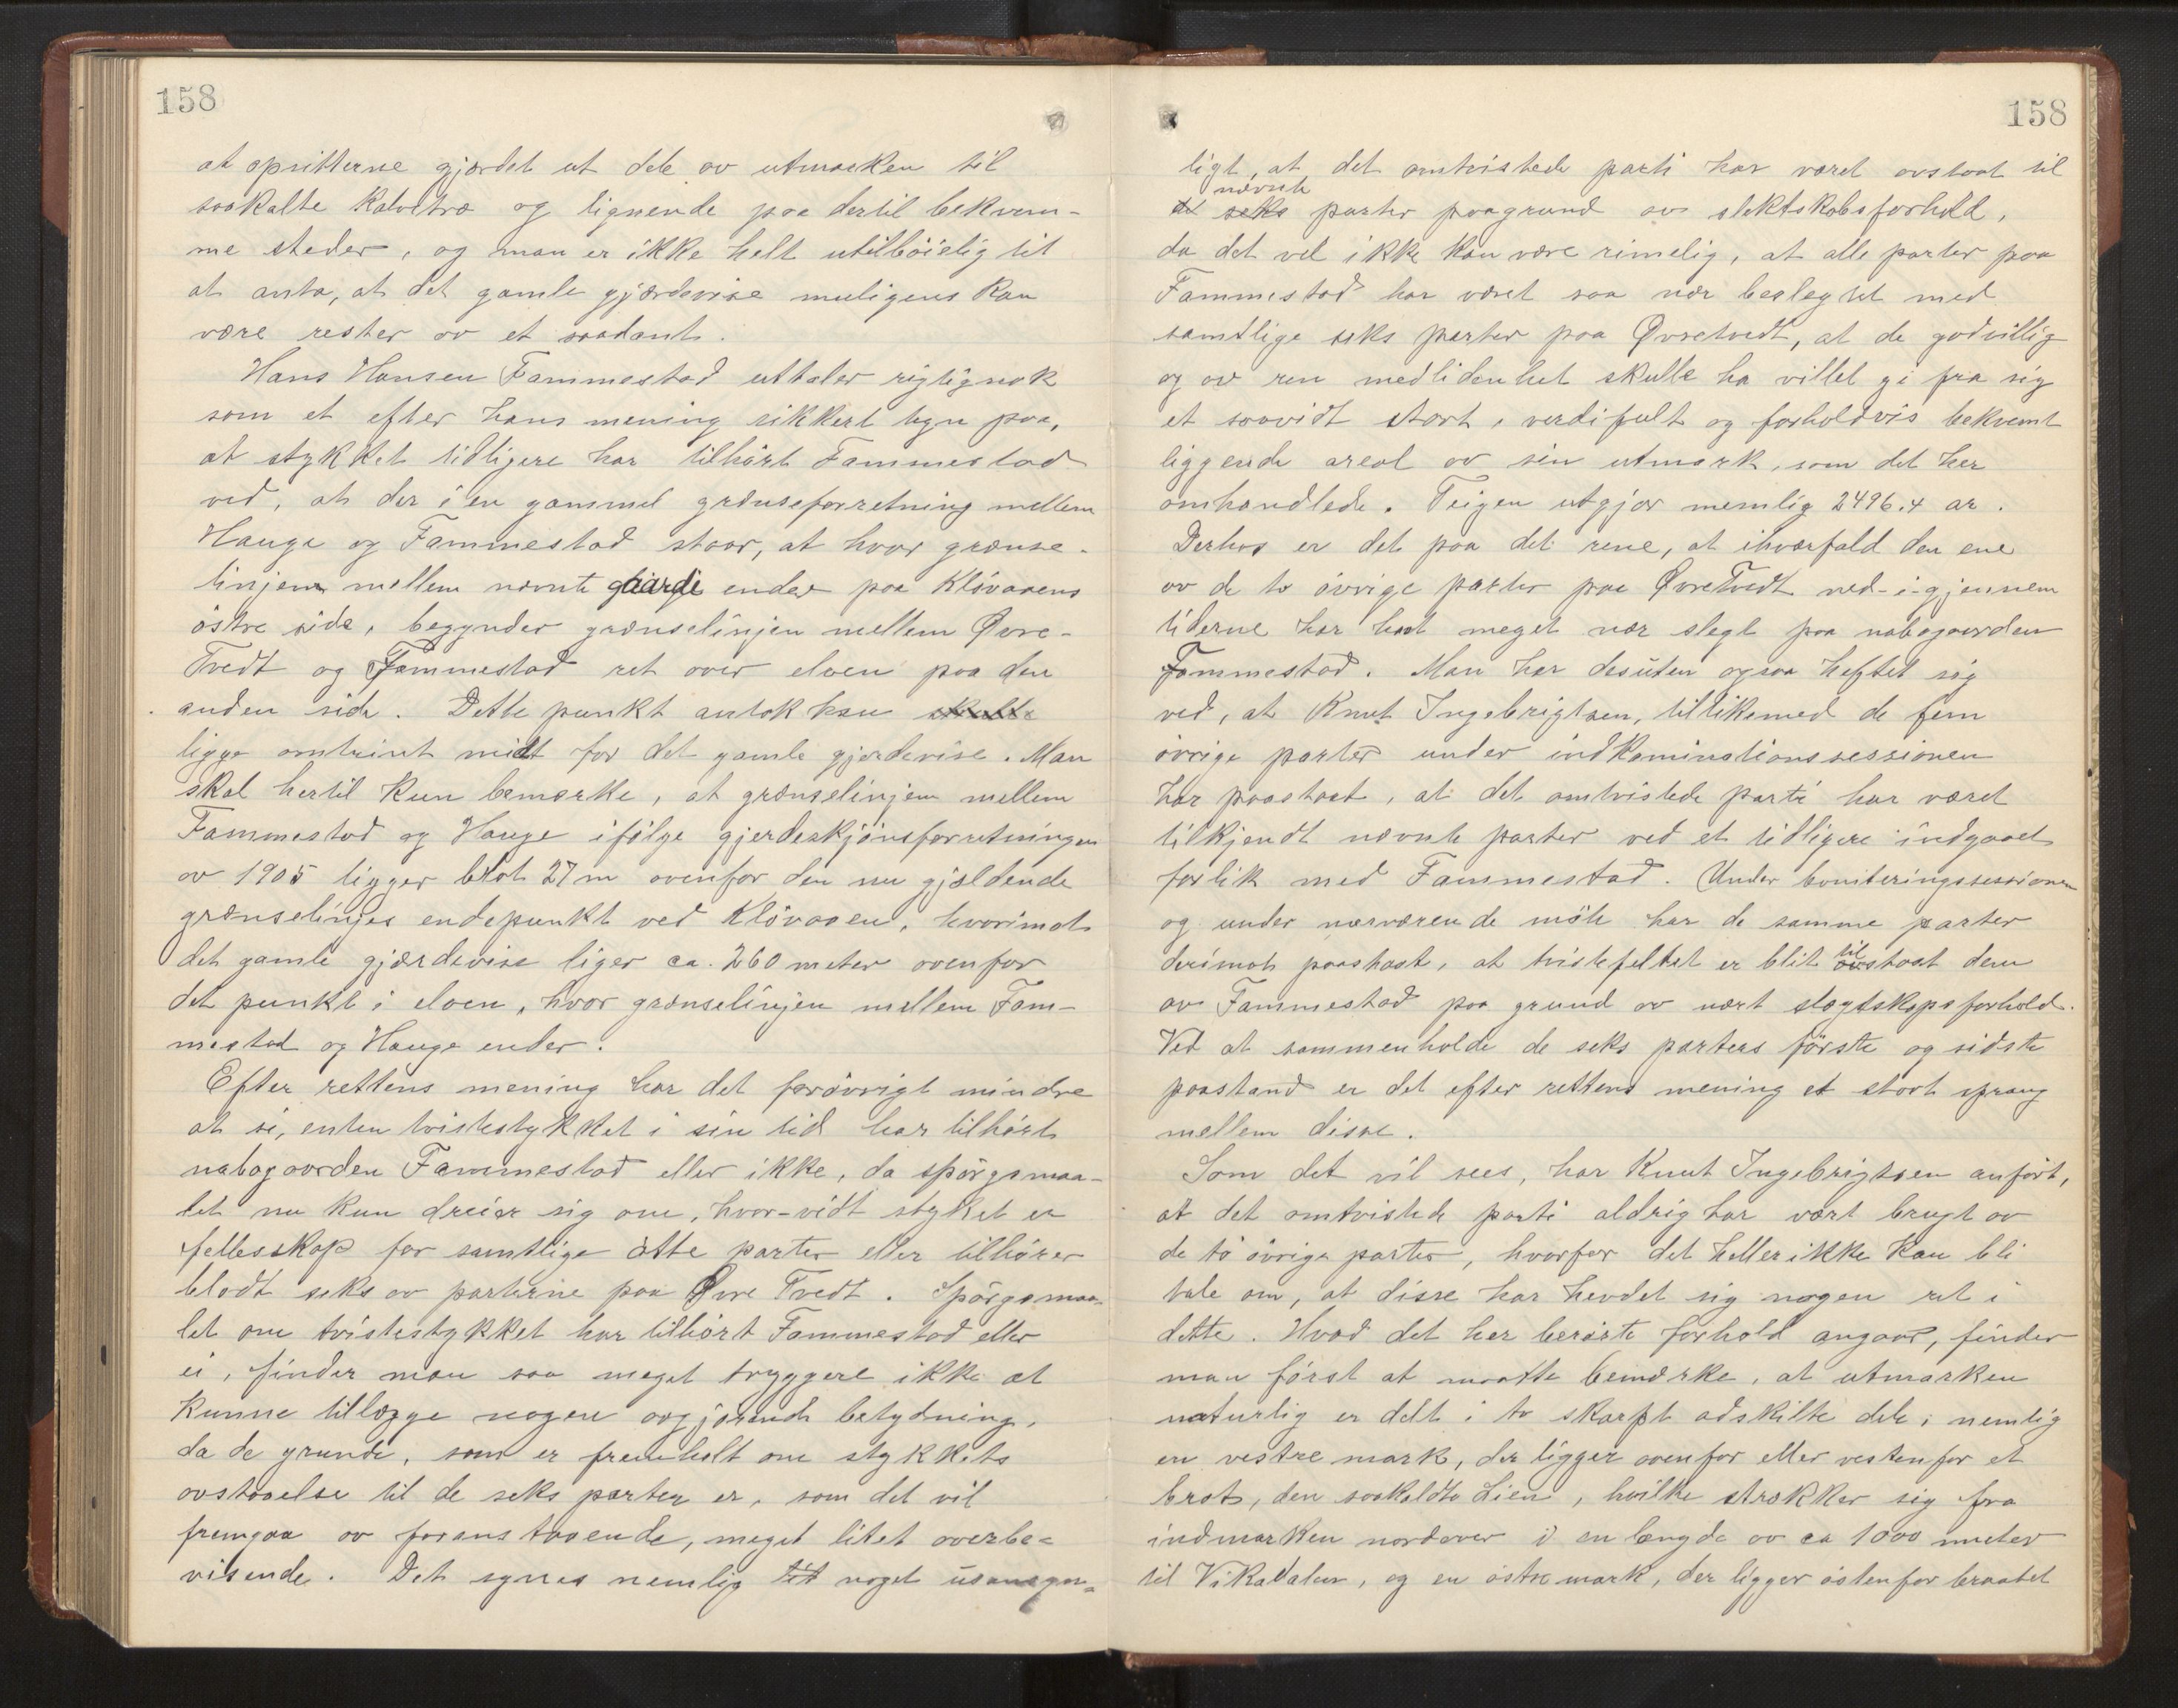 158
at opsitterne gjærdet ut dele av utmarken til
saakalte kalvetræ og lignende paa dertil bekvem-
me steder, og man er ikke helt utilbøielig til
at anta, at det gamle gjærdevise muligens kan
være rester av et saadant.
Hans Hansen Fammestad uttaler rigtignok
som et efter hans mening sikkert tegn paa,
at stykket tidligere har tilhørt Fammestad
ved, at der i en gammel grænseforretning mellem
Hauge og Fammestad staar, at hvor grænse-
linjen mellem nævnte gaarde ender paa Kløvaaens
østre side, begynder grænselinjen mellem Øvre-
Tvedt og Fammestad ret over elven paa den
anden side. Dette punkt antok han skulle
ligge omtrint midt for det gamle gjerdevise. Man
skal hertil kun bemærke, at grænselinjen mellem
Fammestad og Hauge ifølge gjerdeskjønsforretningen
av 1905 ligger blot 27 m ovenfor den nu gjældende
grænselinjes endepunkt ved Kløvaaen, hvorimot
det gamle gjærdevise liger ca. 260 meter ovenfor
det punkt i elven, hvor grænselinjen mellem Fam-
mestad og Hauge ender.
Efter rettens mening har det forøvrigt mindre
at si, enten tvistestykket i sin tid har tilhørt
nabogaarden Fammestad eller ikke, da spørgsmaa-
let nu kun dreier sig om, hvor-vidt styket er
fellesskap for samtlige åtte parter eller tilhører
blodt seks av parterne paa Øvre Tvedt. Spørgsmaa-
let om tvistestykket har tilhørt Fammestad eller
ei, finder man saa meget tryggere ikke at
kunne tillægge nogen avgjørende betydning,
da de grunde, som er fremholt om stykkets
avstaaelse til de seks parter er, som det vil
fremgaa av foranstaaende, meget litet overbe-
visende. Det synes nemlig lit noget usansyn-
158
ligt, at det omtvistede parti har været avstaat til
nævnte
de seks parter paagrund av slektskabsforhold,
da det vel ikke kan være rimelig, at alle parter paa
Fammestad har været saa nær beslegtet med
samtlige seks parter paa Øvretvedt, at de godvillig
og av ren medlidenhet skulle ha villet gi fra sig
et saavidt stort, verdifult og forholdvis bekvemt
liggende areal av sin utmark, som det her
omhandlede. Teigen utgjør nemlig 2496.4 ar.
Derhos er det paa det rene, at ihværfald den ene
av de to øvrige parter paa Øvretvedt ned-i-gjennem
tiderne har hat meget nær slegt paa nabogaarden
Fammestad. Man har desuten ogsaa heftet sig
ved, at Knut Ingebrigtsen, tillikemed de fem
øvrige parter under indkaminationssessionen
har paastaat, at det omtvistede parti har været
tilkjendt nævnte parter ved et tidligere indgaaet
forlik med Fammestad. Under boniteringssessionen
og under nærværende møte har de samme parter
derimot paastaat, at tvistefeltet er blit avstaat dem
til
av Fammestad paa grund av nært slægtskapsforhold.
Ved at sammenholde de seks parters første og sidste
paastand er det efter rettens mening et stort sprang
mellem disse.
Som det vil sees, har Knut Ingebrigtsen anført,
at det omtvistede parti aldrig har vært brugt av
de to øvrige parter, hvorfor det heller ikke kan bli
tale om, at disse har hevdet sig nogen ret i
dette. Hvad det her berørte forhold angaar, finder
man først at maatte bemærke, at utmarken
naturlig er delt i to skarpt adskilte dele, nemlig
en vestre mark, der ligger ovenfor eller vestenfor et
brat, den saakaldte Lien, hvilke strækker sig fra
indmarken nordover i en længde av ca 1000 meter
til Vikadalen, og en østre mark, der ligger østenfor braatet